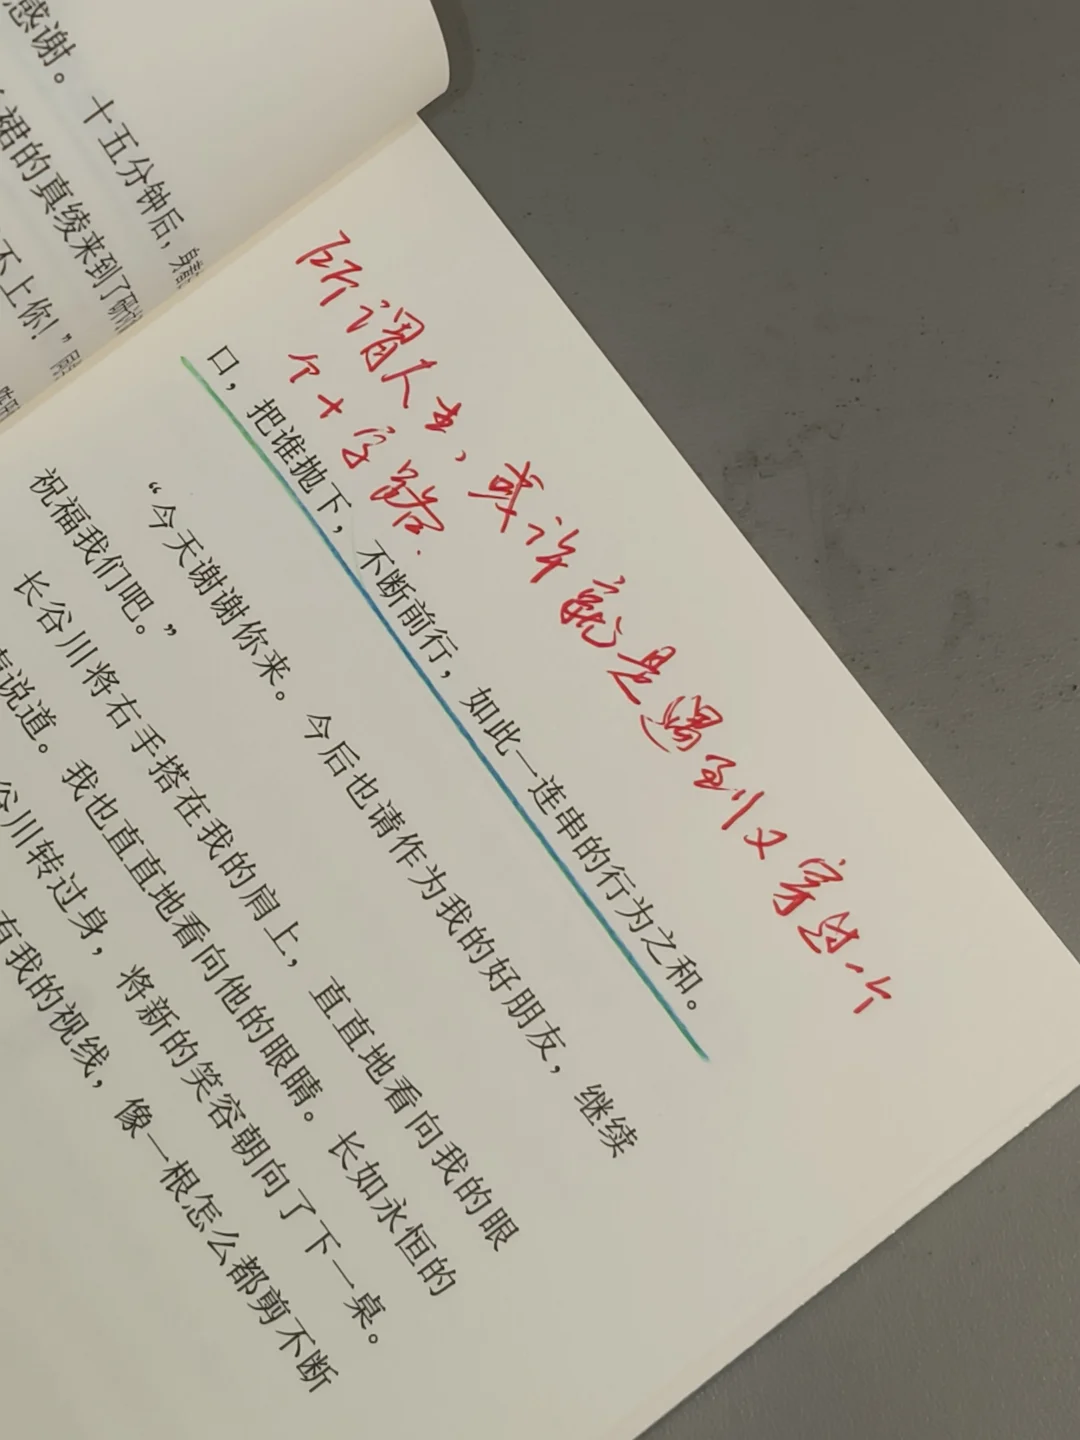 感谢。十五分钟后，身着
裙的真绫来到了
不上你！”
所谓人生，或许就是遇到又穿过一个
个十字路
口，把谁抛下，不断前行，如此一连串的行为之和。
“今天谢谢你来。今后也请作为我的好朋友，继续
祝福我们吧。”
长谷川将右手搭在我的肩上，直直地看向我的眼
说道。我也直直地看向他的眼睛。长如永恒的
谷川转过身，将新的笑容朝向了下一桌。
有我的视线，像一根怎么都剪不断